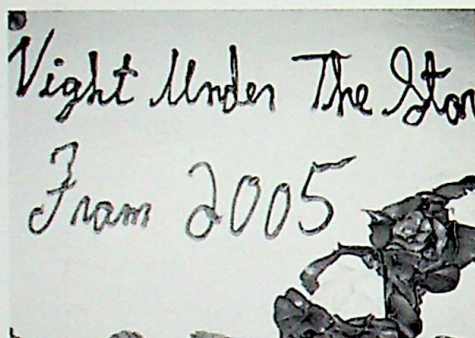 Night Under The Star
Fram 2005